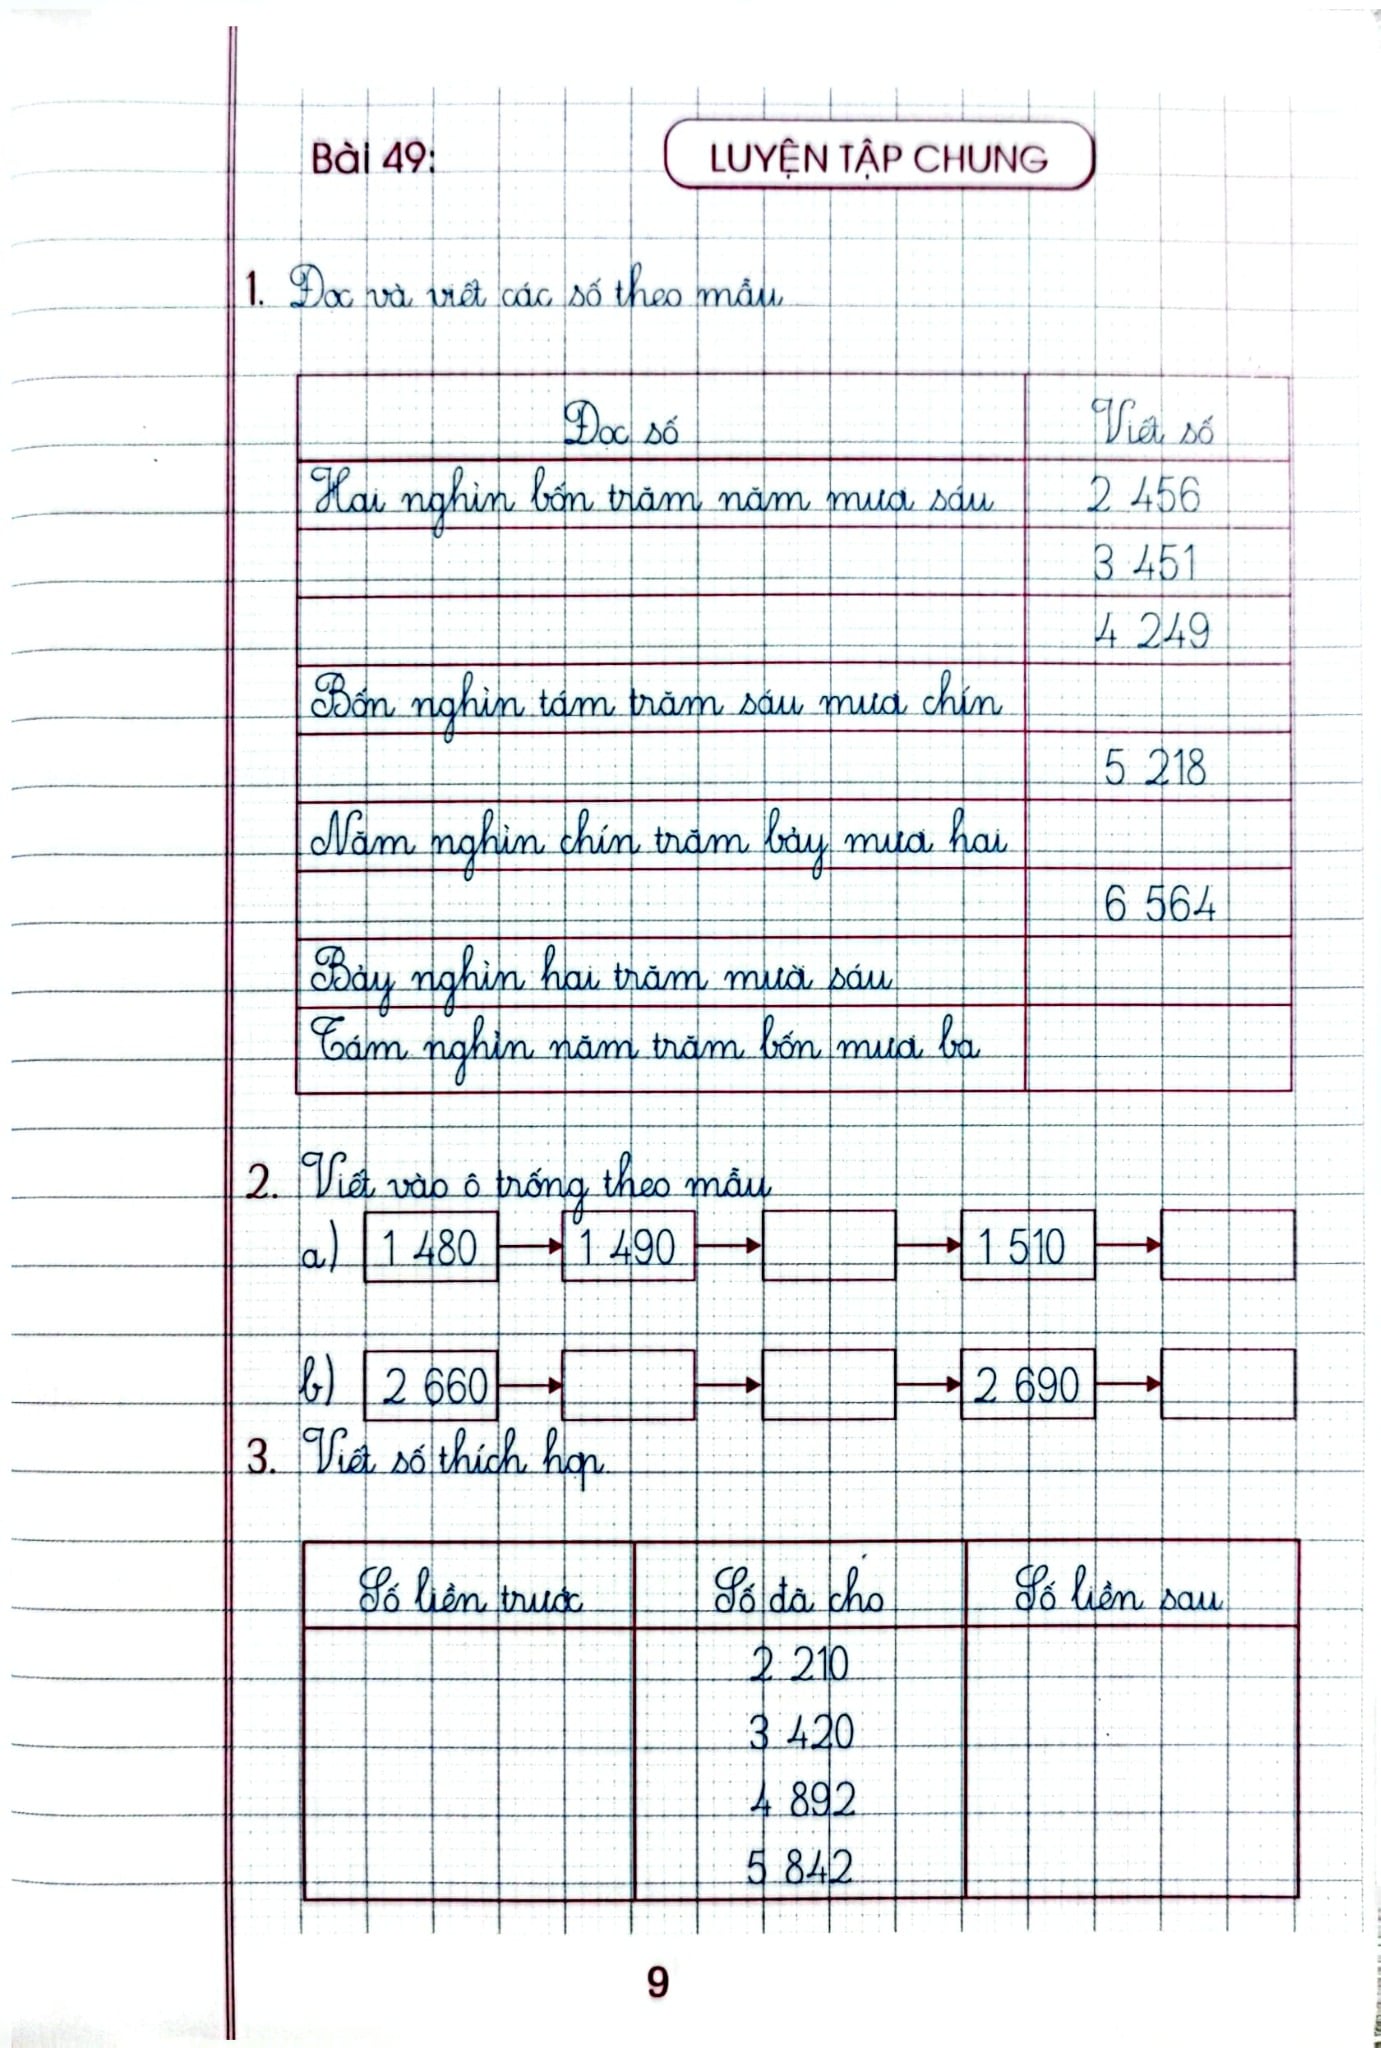 Bài 49: LUYỆN TẬP CHUNG
1. Đọc và viết các số theo mẫu
Đọc số Viết số
Hai nghìn bốn trăm năm mươi sáu 2 456
3 451
4 249
Bốn nghìn tám trăm sáu mươi chín
5 218
Năm nghìn chín trăm bảy mươi hai
6 564
Bảy nghìn hai trăm mười sáu
Tám nghìn năm trăm bốn mươi ba
2. Viết vào ô trống theo mẫu
a) 1 480 → 1 490 → → 1 510 →
b) 2 660 → → → 2 690 →
3. Viết số thích hợp
Số liền trước Số đã cho Số liền sau
2 210
3 420
4 892
5 842
9